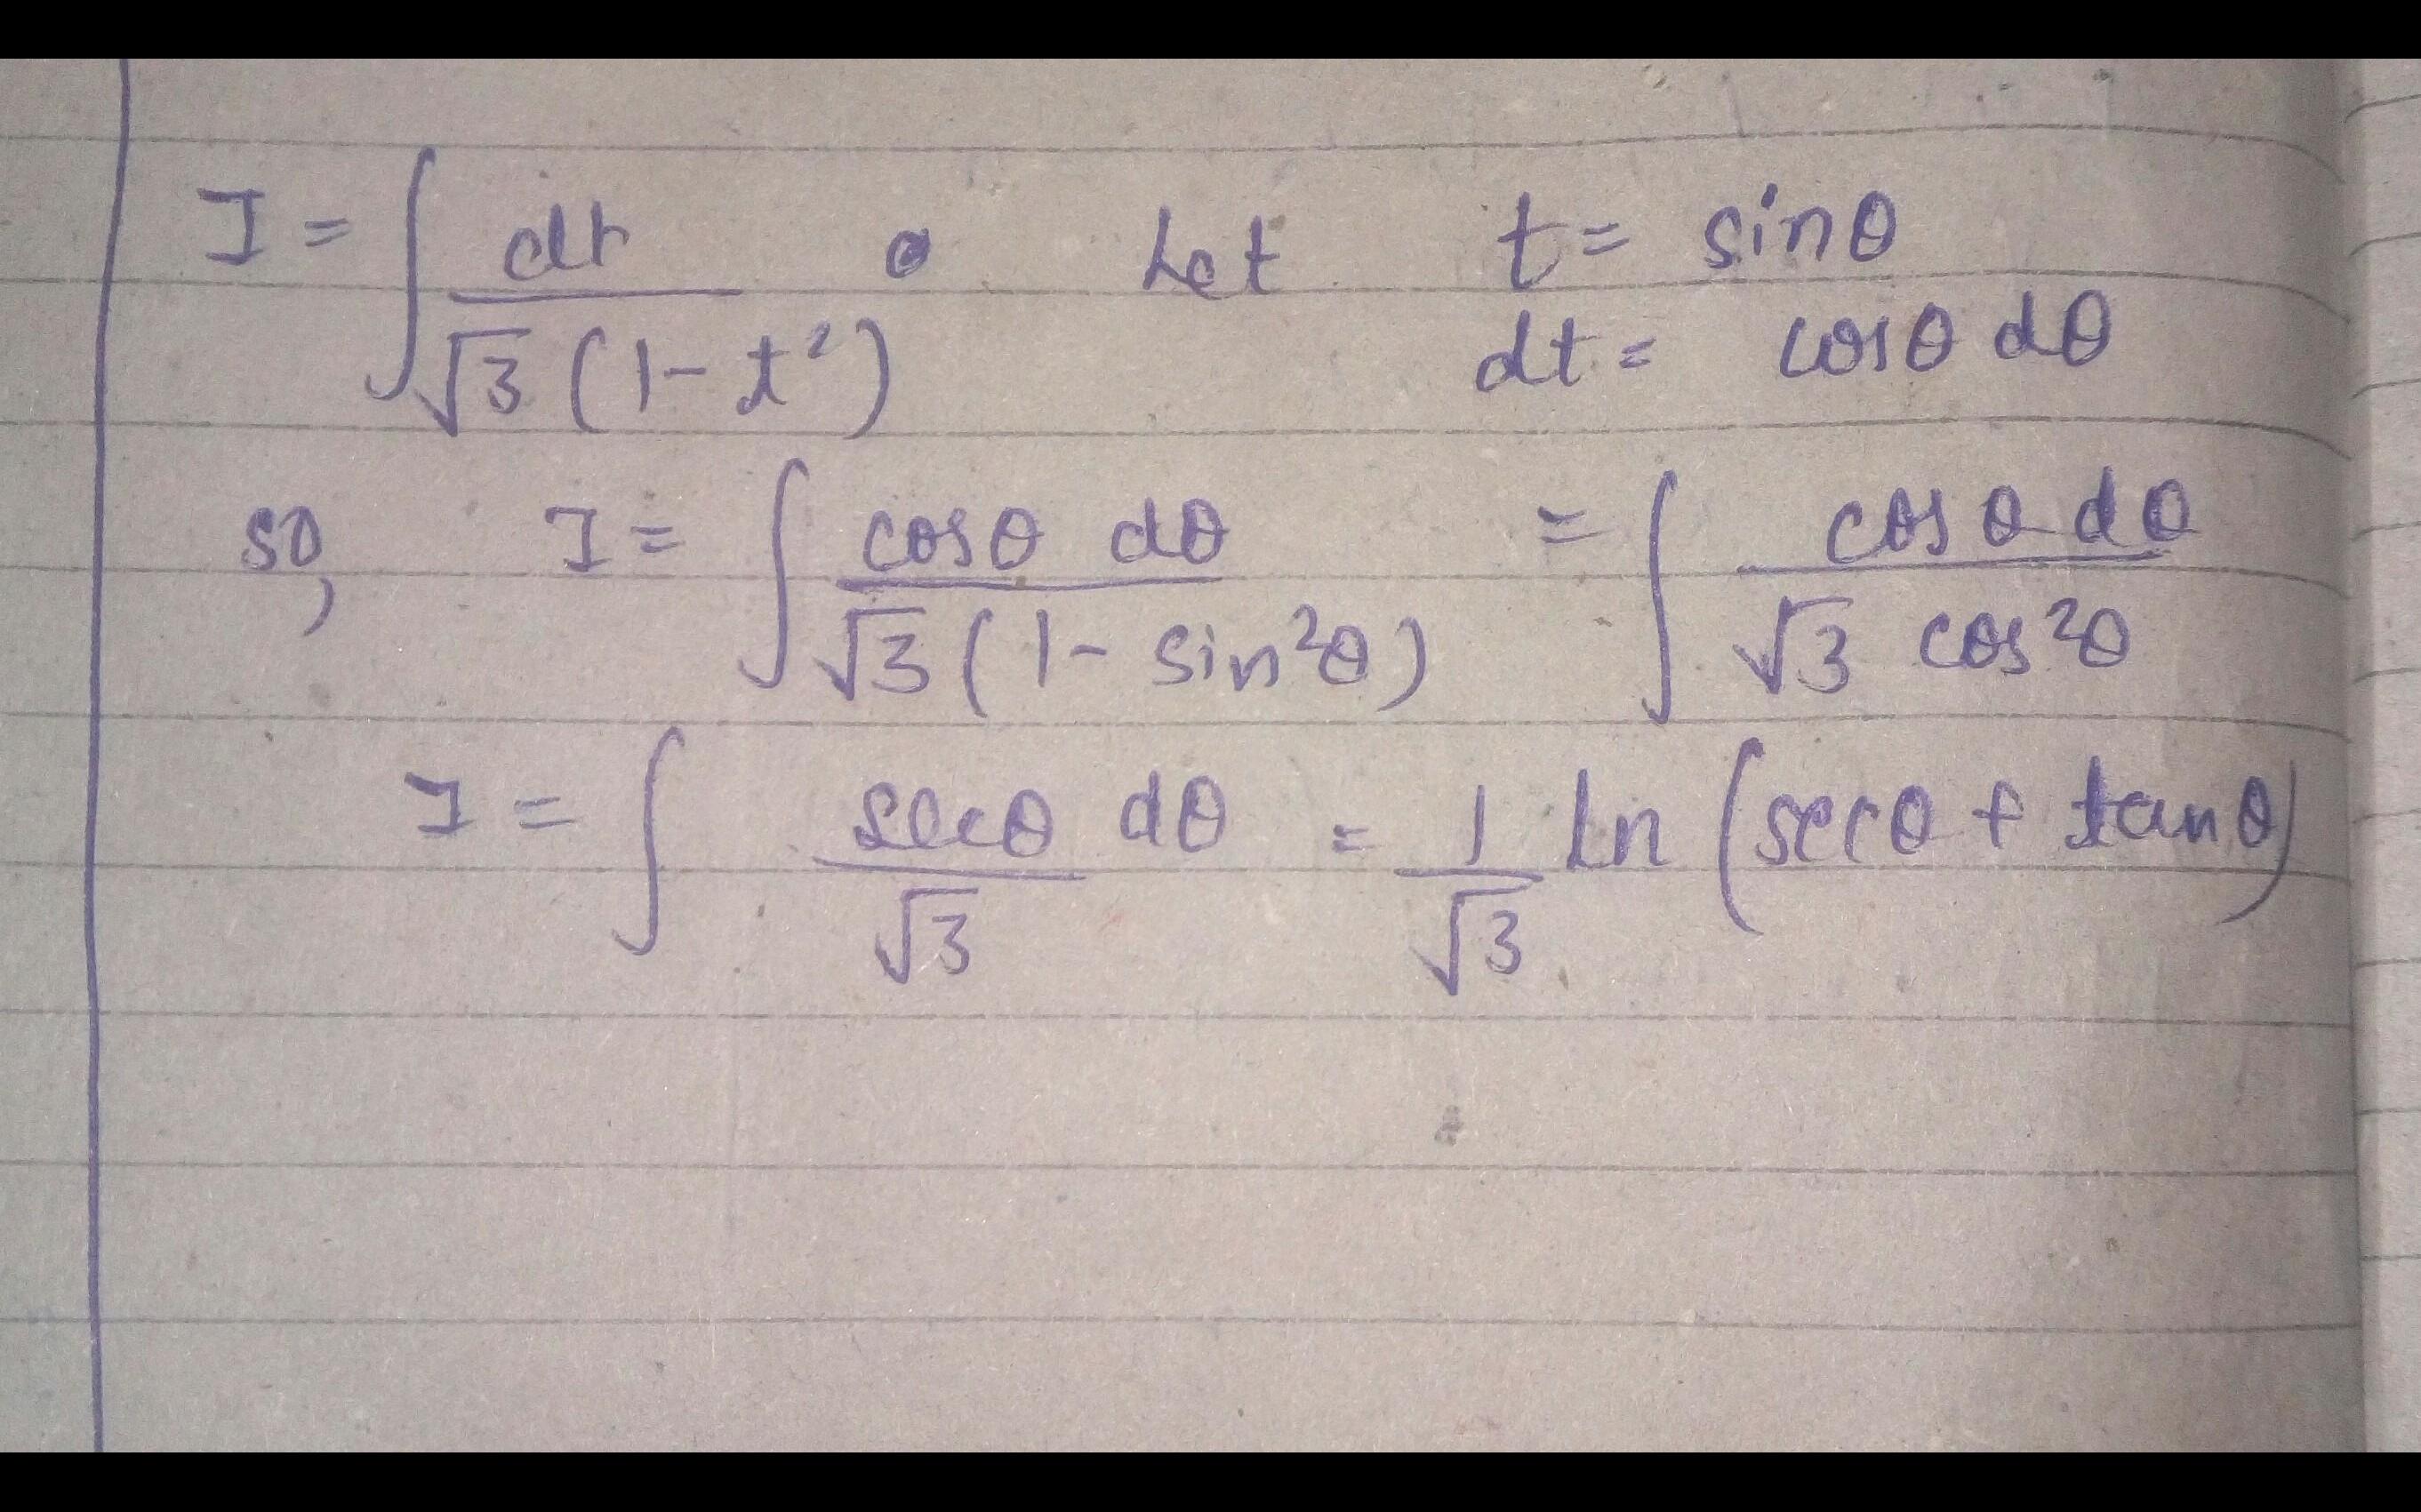 I = ∫ dt / √3 (1 - t²) Let t = sinθ
dt = cosθ dθ
so, I = ∫ cosθ dθ / √3 (1 - sin²θ) = ∫ cosθ dθ / √3 cos²θ
I = ∫ secθ / √3 dθ = 1/√3 ln (secθ + tanθ)